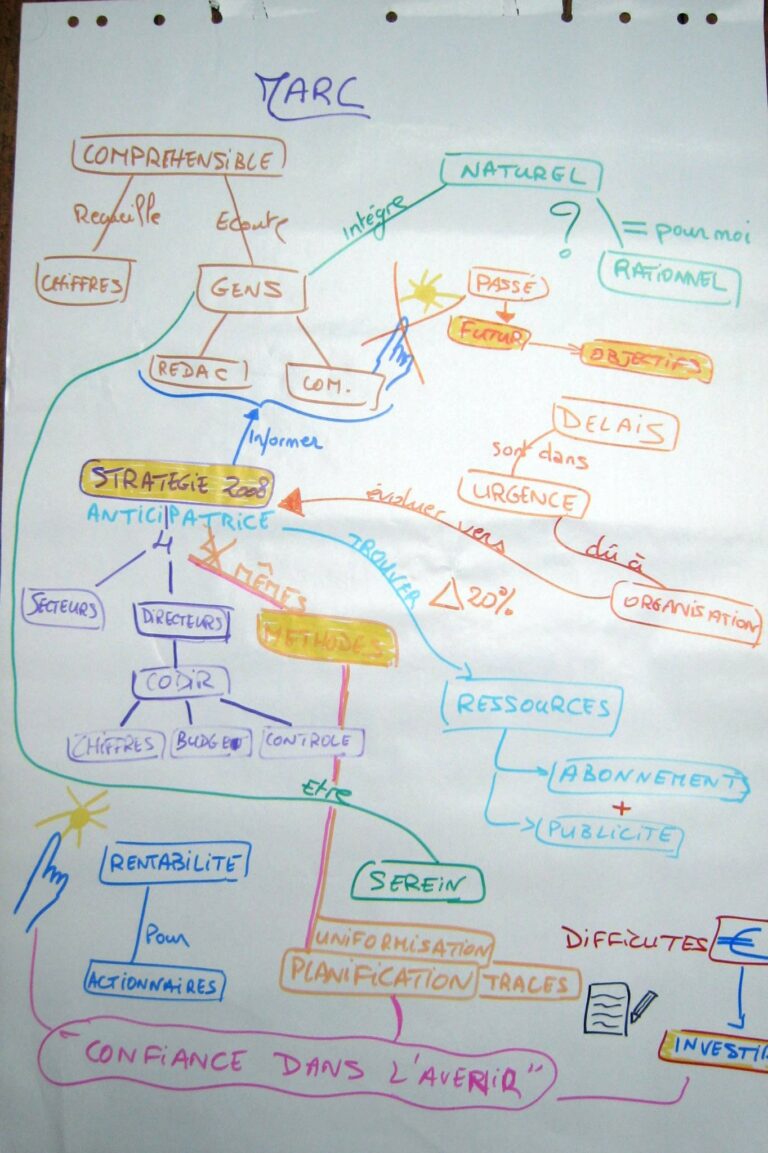 MARC
COMPREHENSIBLE
NATUREL
Recueille
Ecoute
Intègre
?
= pour moi
CHIFFRES
GENS
RATIONNEL
PASSÉ
FUTUR
OBJECTIFS
REDAC
COM.
DELAIS
Informer
sont dans
STRATEGIE 2008
URGENCE
ANTICIPATRICE
évoluer vers
dû à
4
TROUVER
MÊMES
Δ 20%
SECTEURS
DIRECTEURS
ORGANISATION
METHODES
CODIR
RESSOURCES
CHIFFRES
BUDGET
CONTROLE
ABONNEMENT
Etre
+
PUBLICITE
RENTABILITE
SEREIN
Pour
UNIFORMISATION
DIFFICUTES
€
ACTIONNAIRES
PLANIFICATION
TRACES
INVESTIR
"CONFIANCE DANS L'AVENIR"